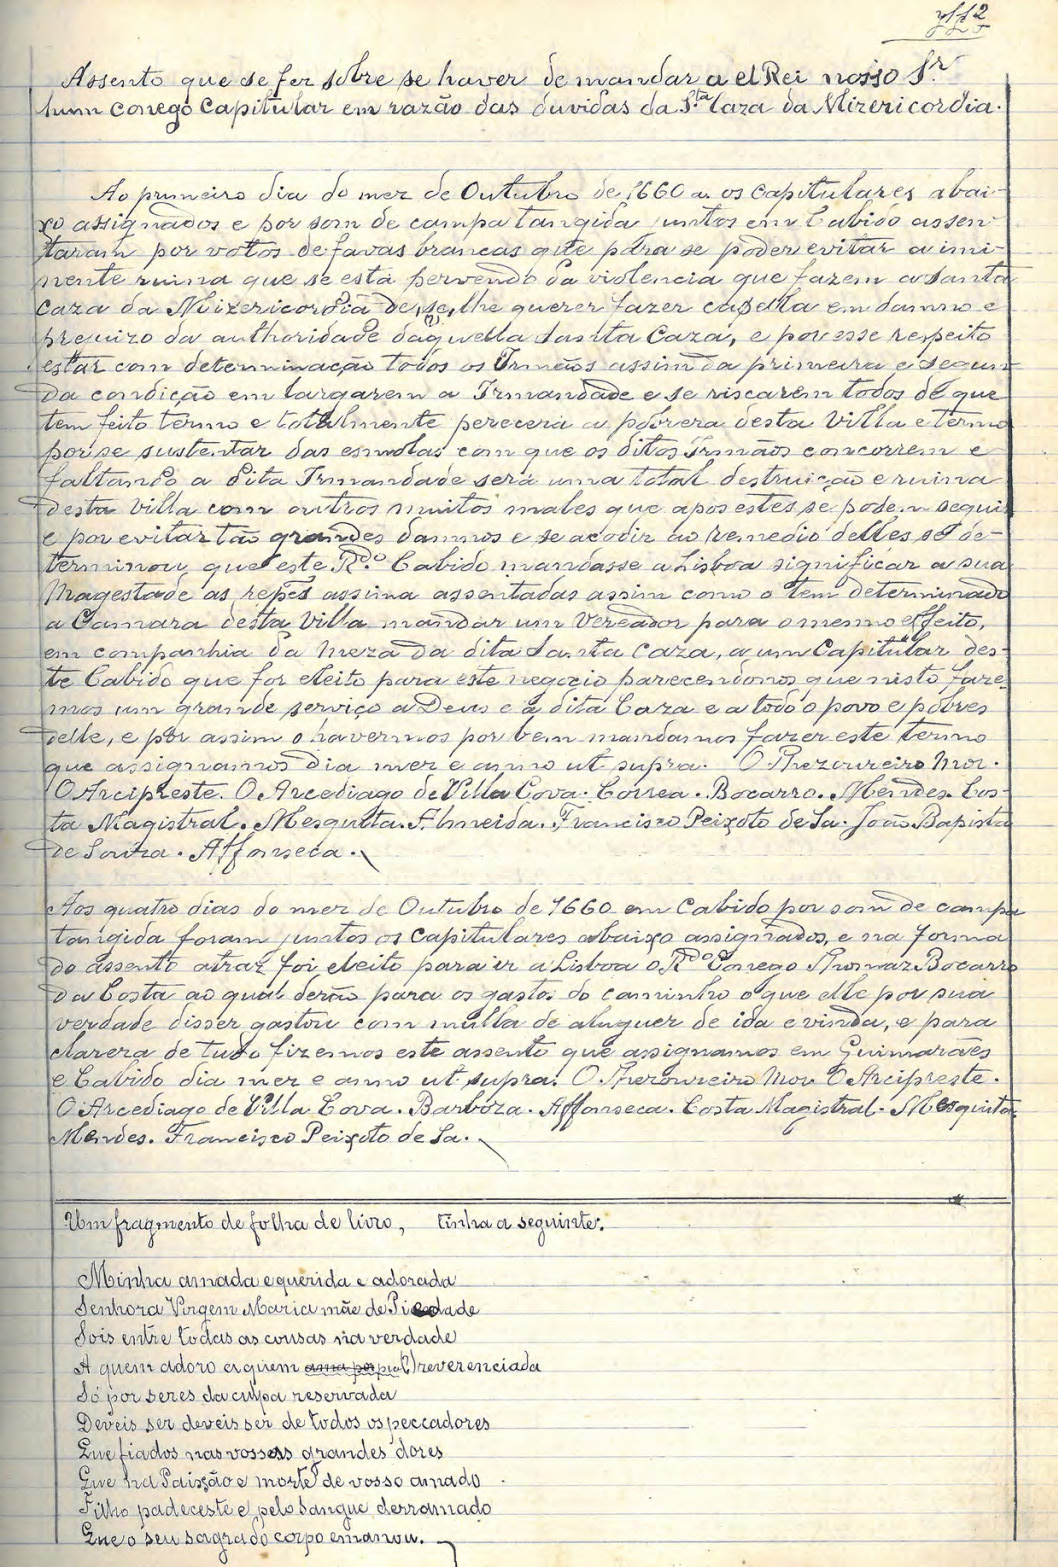 Assento que se fez sobre se haver de mandar a el Rei nosso Sr.
hum conego Capitular em razão das duvidas da Sta. Caza da Mizericordia.
Ao primeiro dia do mez de Outubro de 1660 a. os capitulares abai-
xo assignados e por som de campa tangida juntos em Cabido assen-
taram por votos de favas brancas que para se poder evitar a imi-
nente ruina que se está pervendo da violencia que fazem a Santa
Caza da Mizericordia de se lhe querer fazer capella em damno e
prejuizo da authoridade daquella Santa Caza, e por esse respeito
estar com determinação todos os Irmãos assim da primeira e segun-
da condição em largarem a Irmandade e se riscarem todos de que
tem feito termo e totalmente perecerá a pobreza desta Villa e termo
por se sustentar das esmolas com que os ditos Irmãos concorrem e
faltando a dita Irmandade será uma total destruição e ruina
desta Villa com outros muitos males que apos estes se podem seguir
e por evitar tão grandes damnos e se acodir ao remedio delles se de-
terminou que este Rdo. Cabido mandasse a Lisboa significar a sua
Magestade as repes assima assentadas assim como o tem determinado
a Camara desta Villa mandar um Vereador para o mesmo effeito,
em companhia da Meza da dita Santa Caza, a um Capitular des-
te Cabido que for eleito para este negocio parecendonos que nisto faze-
mos um grande serviço a Deus e á dita Caza e a todo o povo e pobres
delle, e por assim o havermos por bem mandamos fazer este termo
que assignamos dia mez e anno ut supra. O Thezoureiro Mor.
O Arcipreste. O Arcediago de Villa Cova. Correa. Bocarro. Mendes. Cos-
ta Magistral. Mesquita. Almeida. Francisco Peixoto de Sa. João Bapista
de Souza. Affonseca.
Aos quatro dias do mez de Outubro de 1660 em Cabido por som de campa
tangida foram juntos os capitulares abaixo assignados, e na forma
do assento atraz foi eleito para ir a Lisboa o Rdo. Conego Thomaz Bocarro
da Costa ao qual derão para os gastos do caminho o que elle por sua
verdade disser gastou com mulla de aluguer de ida e vinda, e para
clareza de tudo fizemos este assento que assignamos em Guimarães
e Cabido dia mez e anno ut supra. O Thezoureiro Mor O Arcipreste.
O Arcediago de Villa Cova. Barboza. Affonseca. Costa Magistral. Mesquita.
Mendes. Francisco Peixoto de Sa.
Um fragmento de folha de livro, tinha a seguinte:
Minha amada e querida e adorada
Senhora Virgem Maria mãe de Piedade
Sois entre todas as cousas na verdade
A quem adoro a quem (?) reverenciada
Só por seres da culpa reservada
Deveis ser deveis ser de todos os peccadores
Que fiados nas vossas grandes dores
Que na Paixão e morte de vosso amado
Filho padeceste e pelo sangue derramado
Que o seu sagrado corpo emanou.